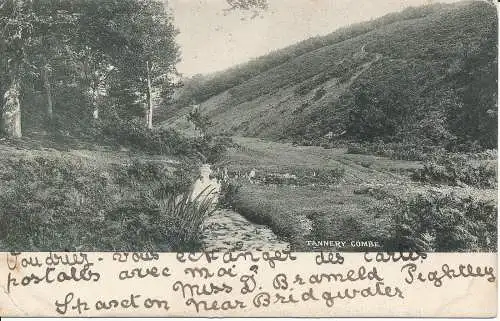 TANNERY COMBE
Voudriez-vous échanger des cartes
postales avec moi? D. Brameld Pightley
Miss
Spaxton near Bridgwater